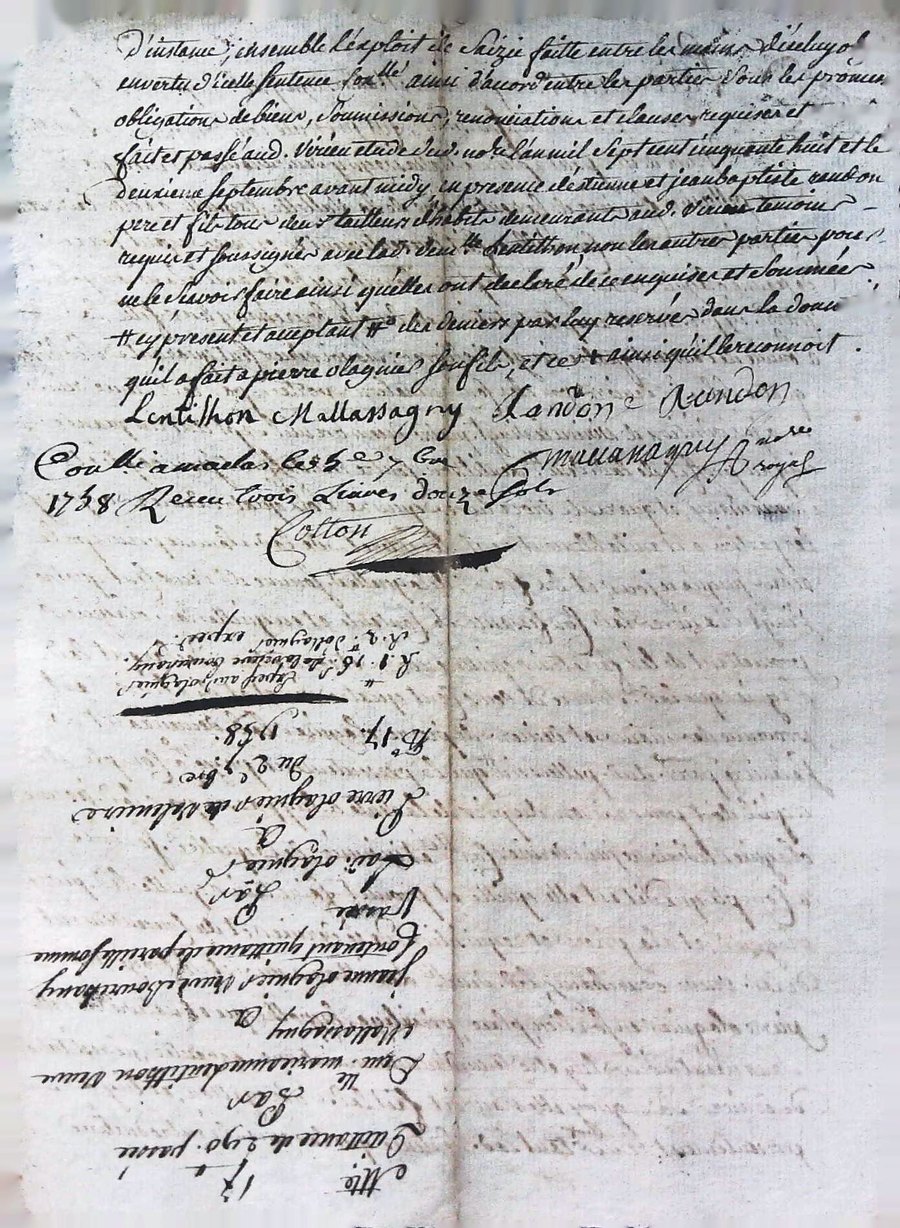 d'instance, ensemble l'exploit de Saizie faitte entre les mains
en vertu d'icelle sentence ainsi d'acord entre les parties Sous les prômes
obligations de biens, Soumissions, renonciations et clauses requises et
fait et passé aud. Virieu etude dud. nore. l'an mil Sept cent cinquante huit et le
deuxieme septembre avant midy, en presence d'estienne et jean baptiste randon
pere et fils tous deux tailleurs d'habits demeurants aud. Virieu temoins
requis et soussignés avec lad. demlle. Lentilhon, non les autres parties pour
ne le Savoir faire ainsi qu'elles ont declaré de ce enquises et Sommées
# cy present et aceptant # des deniers par luy reservés dans la
qu'il a fait a pierre olagnier son fils, et ce ainsi qu'il le reconnoit
Lentilhon Mallassagny Randon Randon
Conllé a maclas les 5e 7bre
nore royal
1758 Receu trois Livres douze Sols
Cotton
Mte. 17#
Quittance de 290# passée
Par
Dlle. marieanne Lentilhon Veuve
Mallassagny
A
jeanne olagnier Veuve Bourchany
Contenant quittance de pareille somme
Passée
Par
olagnier
A
Pierre olagnier de
Du 2e 7bre
No. 17. 1758.